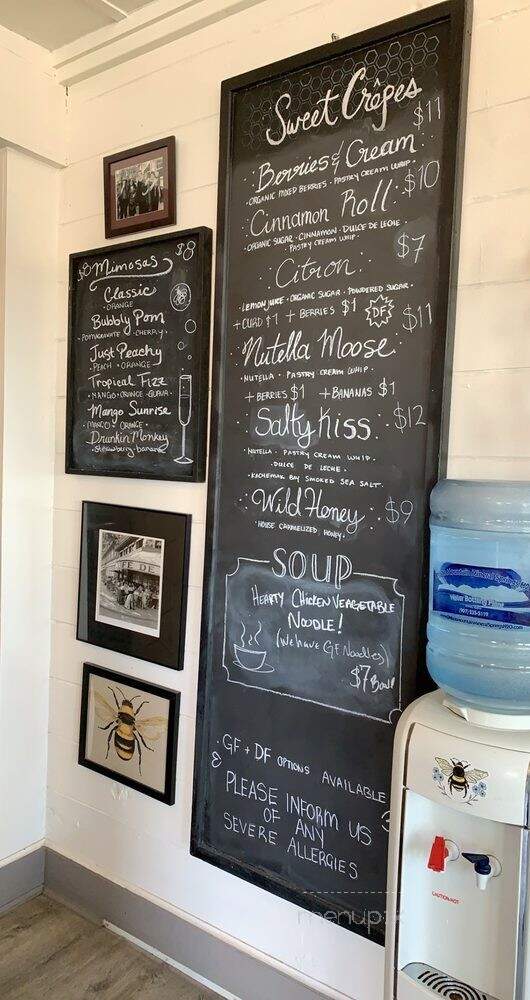 $8 Mimosas $8
Classic
· ORANGE ·
Bubbly Pom
· POMEGRANATE · CHERRY ·
Just Peachy
· PEACH · ORANGE ·
Tropical Fizz
· MANGO · ORANGE · GUAVA ·
Mango Sunrise
· MANGO · ORANGE ·
Drunkin Monkey
· strawberry · banana ·
Sweet Crêpes
· Berries & Cream · $11
· ORGANIC MIXED BERRIES · PASTRY CREAM WHIP ·
Cinnamon Roll · $10
· ORGANIC SUGAR · CINNAMON · DULCE DE LECHE ·
· PASTRY CREAM WHIP ·
· Citron · $7
· LEMON JUICE · ORGANIC SUGAR · POWDERED SUGAR ·
+ CURD $1 + BERRIES $1 DF
Nutella Moose $11
· NUTELLA · PASTRY CREAM WHIP ·
+ BERRIES $1 + BANANAS $1
Salty Kiss $12
· NUTELLA · PASTRY CREAM WHIP ·
· DULCE DE LECHE ·
· KACHEMAK BAY SMOKED SEA SALT ·
Wild Honey $9
· HOUSE CARAMELIZED HONEY ·
SOUP
HEARTY CHICKEN VEAGETABLE
NOODLE!
(We have GF Noodles)
$7 Bowl
· GF + DF OPTIONS AVAILABLE
&
PLEASE INFORM US
OF ANY
SEVERE ALLERGIES
Water Bottling Plant
(907) 235-5159
CAUTION-HOT